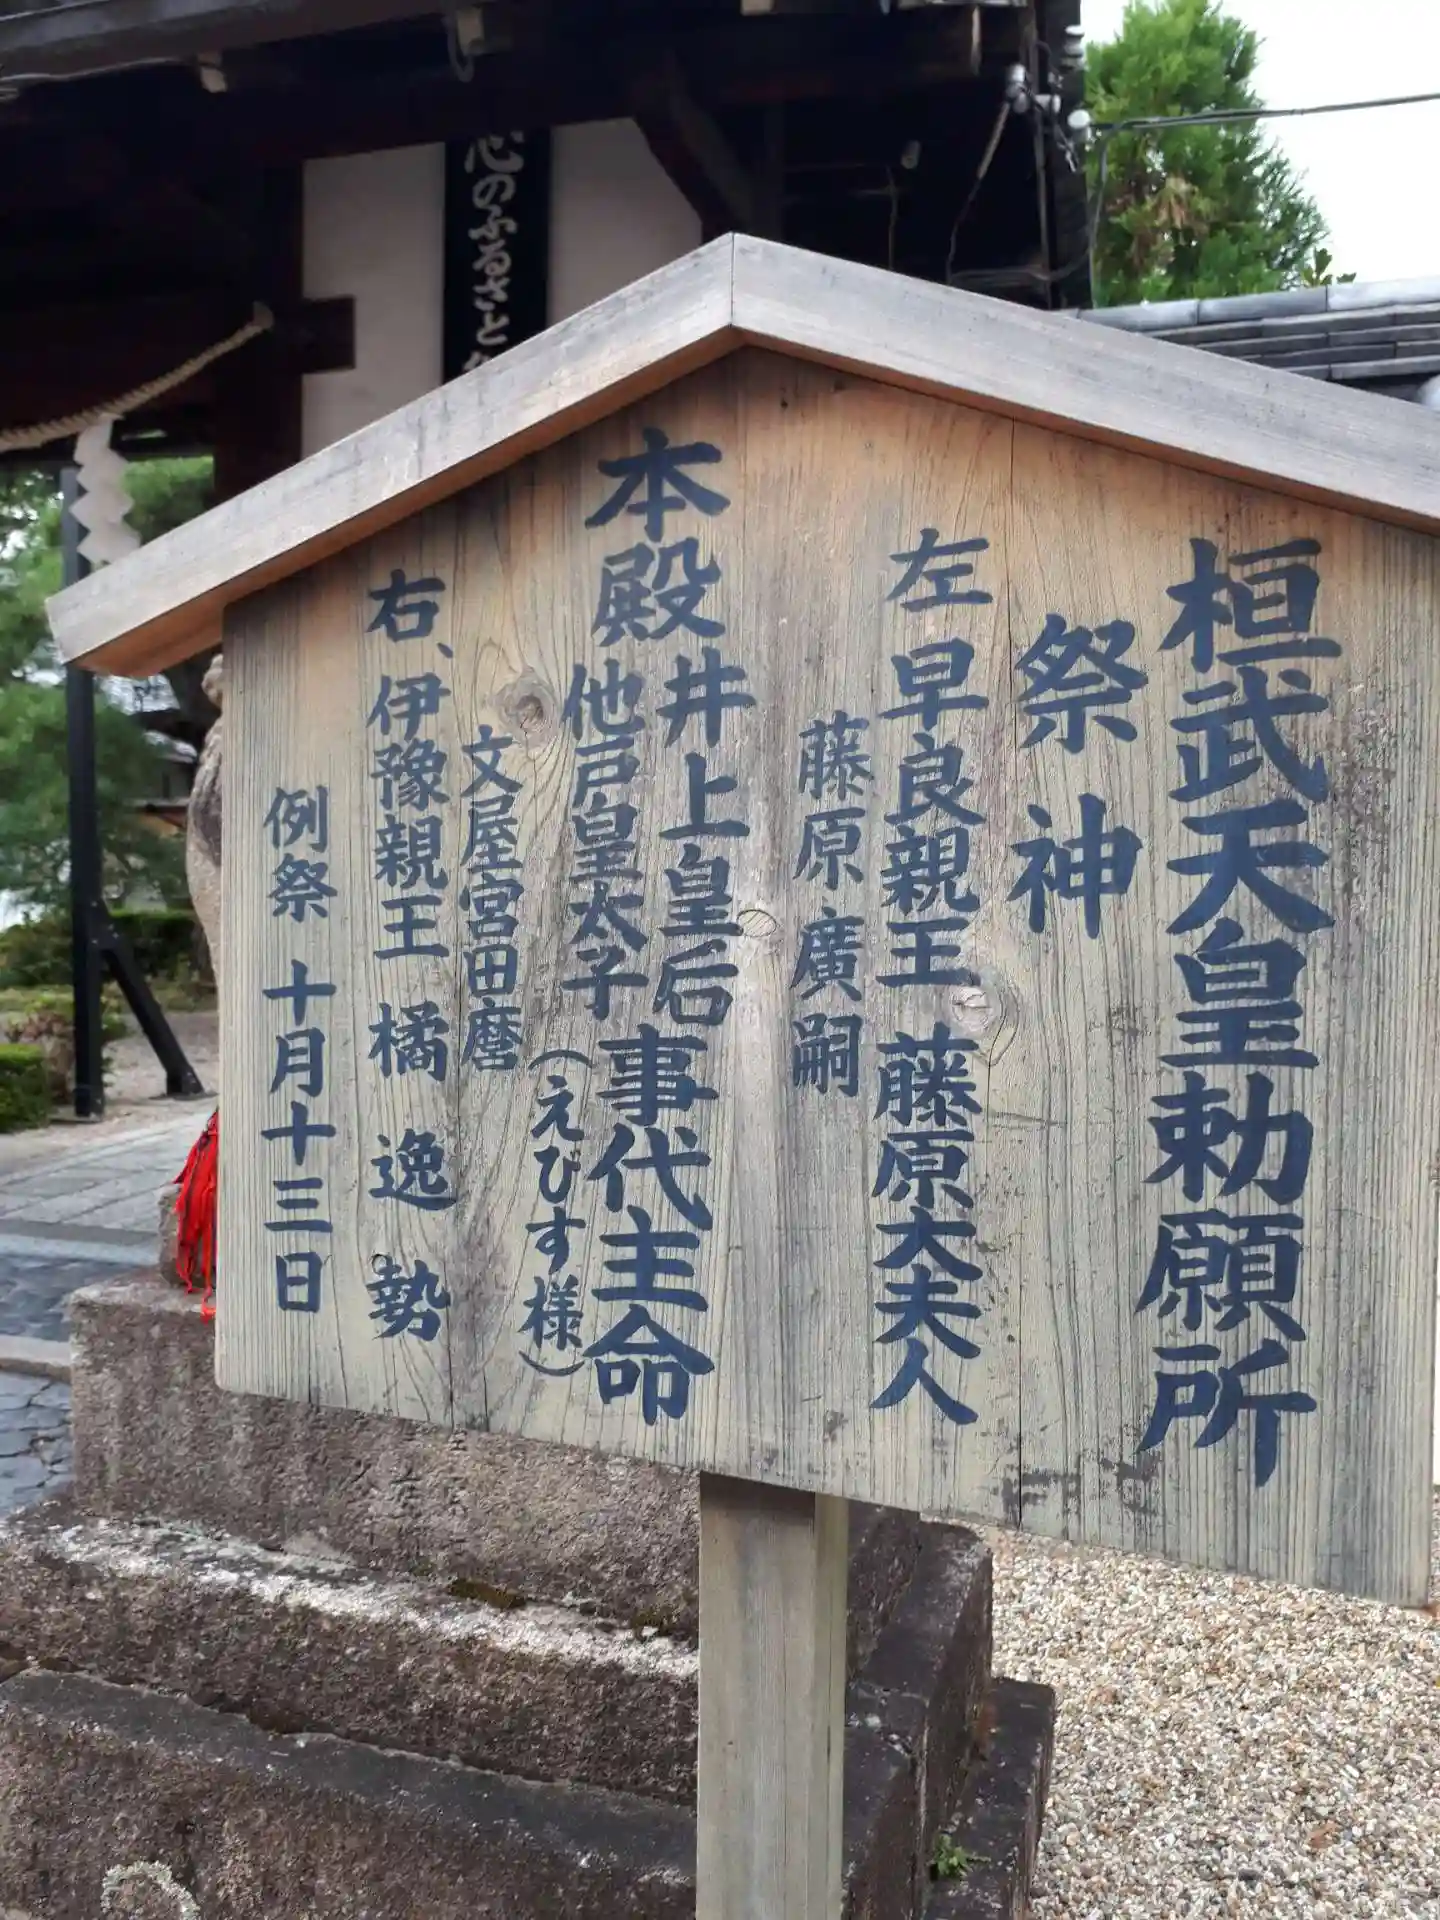 桓武天皇勅願所
祭神
左 早良親王 藤原大夫人
藤原廣嗣
本殿 井上皇后 他戸皇太子 事代主命
(えびす様)
文屋宮田麿
右、伊豫親王 橘逸勢
例祭 十月十三日
心のふるさと